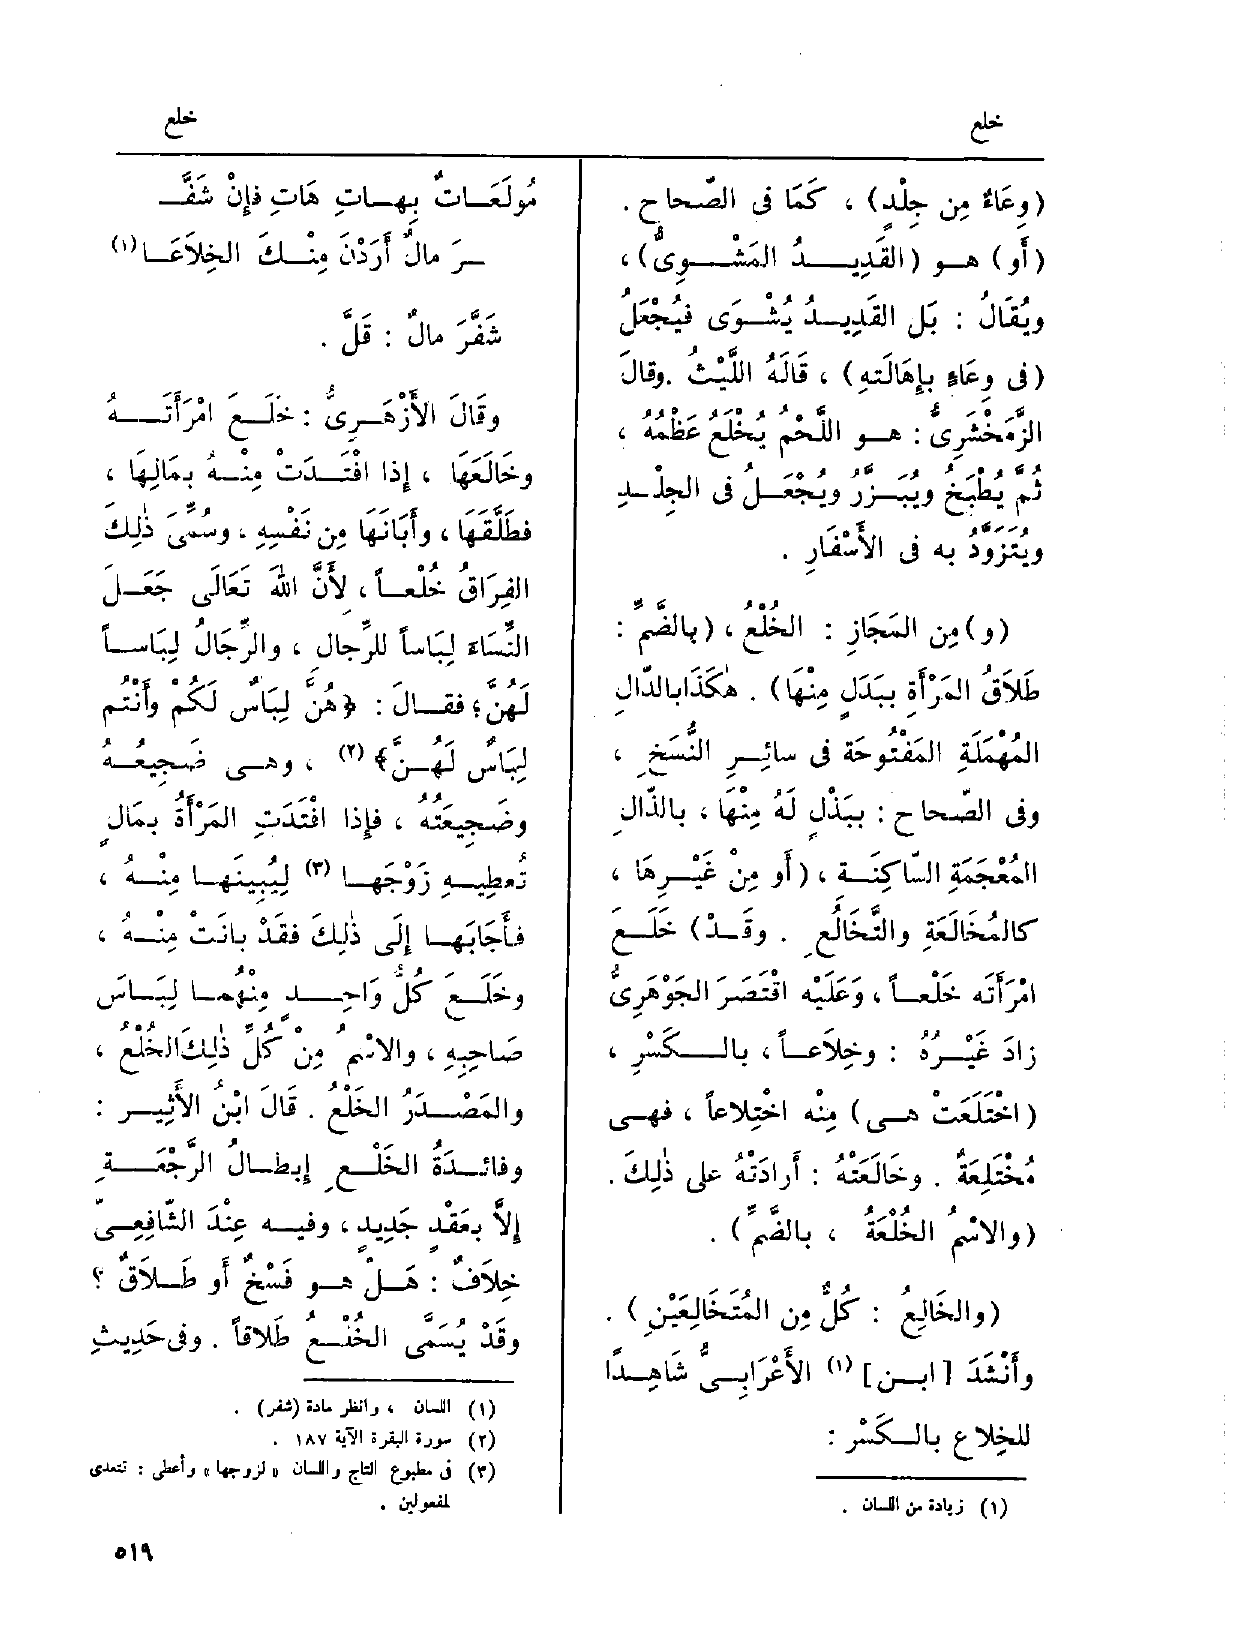 خلع
خلع
(وِعَاءٌ مِن جِلْدٍ) ، كَمَا فى الصّحاح .
(أَو) هـو (القَدِيـدُ المَشْـوِىُّ)،
ويُقَالُ : بَل القَدِيـدُ يُشْـوَى فيُجْعَلُ
(فى وِعَاءٍ بإِهَالَتهِ) ، قَالَهُ اللَّيْثُ .وقالَ
الزَّمَخْشَرِىُّ : هـو اللَّحْمُ يُخْلَعُ عَظْمُهُ ،
ثُمَّ يُطْبَخُ ويُبَـزَّرُ ويُجْعَـلُ فى الجِلْـدِ
ويُتَزَوَّدُ به فى الأَسْفَارِ .
(و)مِن المَجَازِ : الخُلْعُ ، (بِالضَّمِّ :
طَلَاقُ المَرْأَةِ بِبَدَلٍ مِنْهَا) . هٰكَذَا بِالدّالِ
المُهْمَلَةِ المَفْتُوحَة فى سائِـرِ النُّسَخِ ،
وفى الصّحاح : بِبَذْلٍ لَهُ مِنْهَا ، بالذّالِ
المُعْجَمَةِ السّاكِنَـة ، (أَو مِنْ غَيْـرِهَا ،
كالمُخَالَعَةِ والتَّخَالُعِ . وقَـدْ) خَلَـعَ
امْرَأَتَه خَلْعـاً ، وَعَلَيْه اقْتَصَرَ الجَوْهَرِىُّ
زادَ غَيْـرُهُ : وخِلَاعـاً ، بالـكَسْرِ ،
(اخْتَلَعَتْ هـى) مِنْه اخْتِلاعاً ، فهـى
مُخْتَلِعَةٌ . وخَالَعَتْهُ : أَرادَتْهُ على ذٰلِكَ .
(والاسْمُ الخُلْعَةُ ، بالضَّمِّ) .
(والخَالِعُ : كُلٌّ مِن المُتَخَالِعَيْنِ) .
وأَنْشَدَ [ابـن] (١) الأَعْرَابِـىُّ شَاهِـدًا
للخِلاع بالـكَسْر :
(١) زيادة من اللسان .
مُولَعَـاتٌ بِهـاتِ هَاتِ فإِنْ شَفَّـ
ـرَ مالٌ أَرَدْنَ مِنْـكَ الخِلاعَـا (١)
شَفَّرَ مالٌ : قَلَّ .
وقَالَ الأَزْهَـرِىُّ : خَلَـعَ امْرَأَتَـهُ
وخَالَعَهَا ، إِذا افْتَـدَتْ مِنْـهُ بِمَالِهَا ،
فطَلَّقَهَا ، وأَبَانَهَا مِن نَفْسِهِ ، وسُمِّىَ ذٰلِكَ
الفِرَاقُ خُلْعـاً ، لأَنَّ اللهَ تَعَالَى جَعَـلَ
النِّسَاءَ لِبَاساً للرِّجالِ ، والرِّجَالَ لِبَاسـاً
لَهُنّ؛ فقـالَ : ﴿هُنَّ لِبَاسٌ لَكُم وأَنْتُم
لِبَاسٌ لَهُـنَّ﴾ (٢) ، وهـى ضَجِيعُـهُ
وضَجِيعَتُهُ ، فإِذا افْتَدَتِ المَرْأَةُ بِمَالٍ
تُعطِيـهِ زَوْجَهـا (٣) لِيُبِينَهـا مِنْـهُ ،
فأَجَابَهـا إِلَى ذٰلِكَ فقَدْ بانَتْ مِنْـهُ ،
وخَلَـعَ كُلُّ وَاحِـدٍ مِنْهُمـا لِبَـاسَ
صَاحِبِهِ ، والاسْمُ مِن كُلِّ ذٰلِكَ الخُلْعُ ،
والمَصْـدَرُ الخَلْعُ . قَالَ ابْنُ الأَثِيـر :
وفائـدَةُ الخَلْـعِ إِبطـالُ الرَّجْعَـةِ
إِلاَّ بعَقْدٍ جَدِيدٍ ، وفيـه عِنْدَ الشّافِعِـىّ
خِلافٌ : هَـلْ هـو فَسْخٌ أَو طَـلَاقٌ ؟
وقَدْ يُسَمَّى الخُلْـعُ طَلَاقاً . وفى حَدِيثِ
(١) اللسان ، وانظر مادة (شفر) .
(٢) سورة البقرة الآية ١٨٧ .
(٣) فى مطبوع التاج واللسان « لزوجها » وأعطى : تتعدى
لمفعولين .
٥١٩